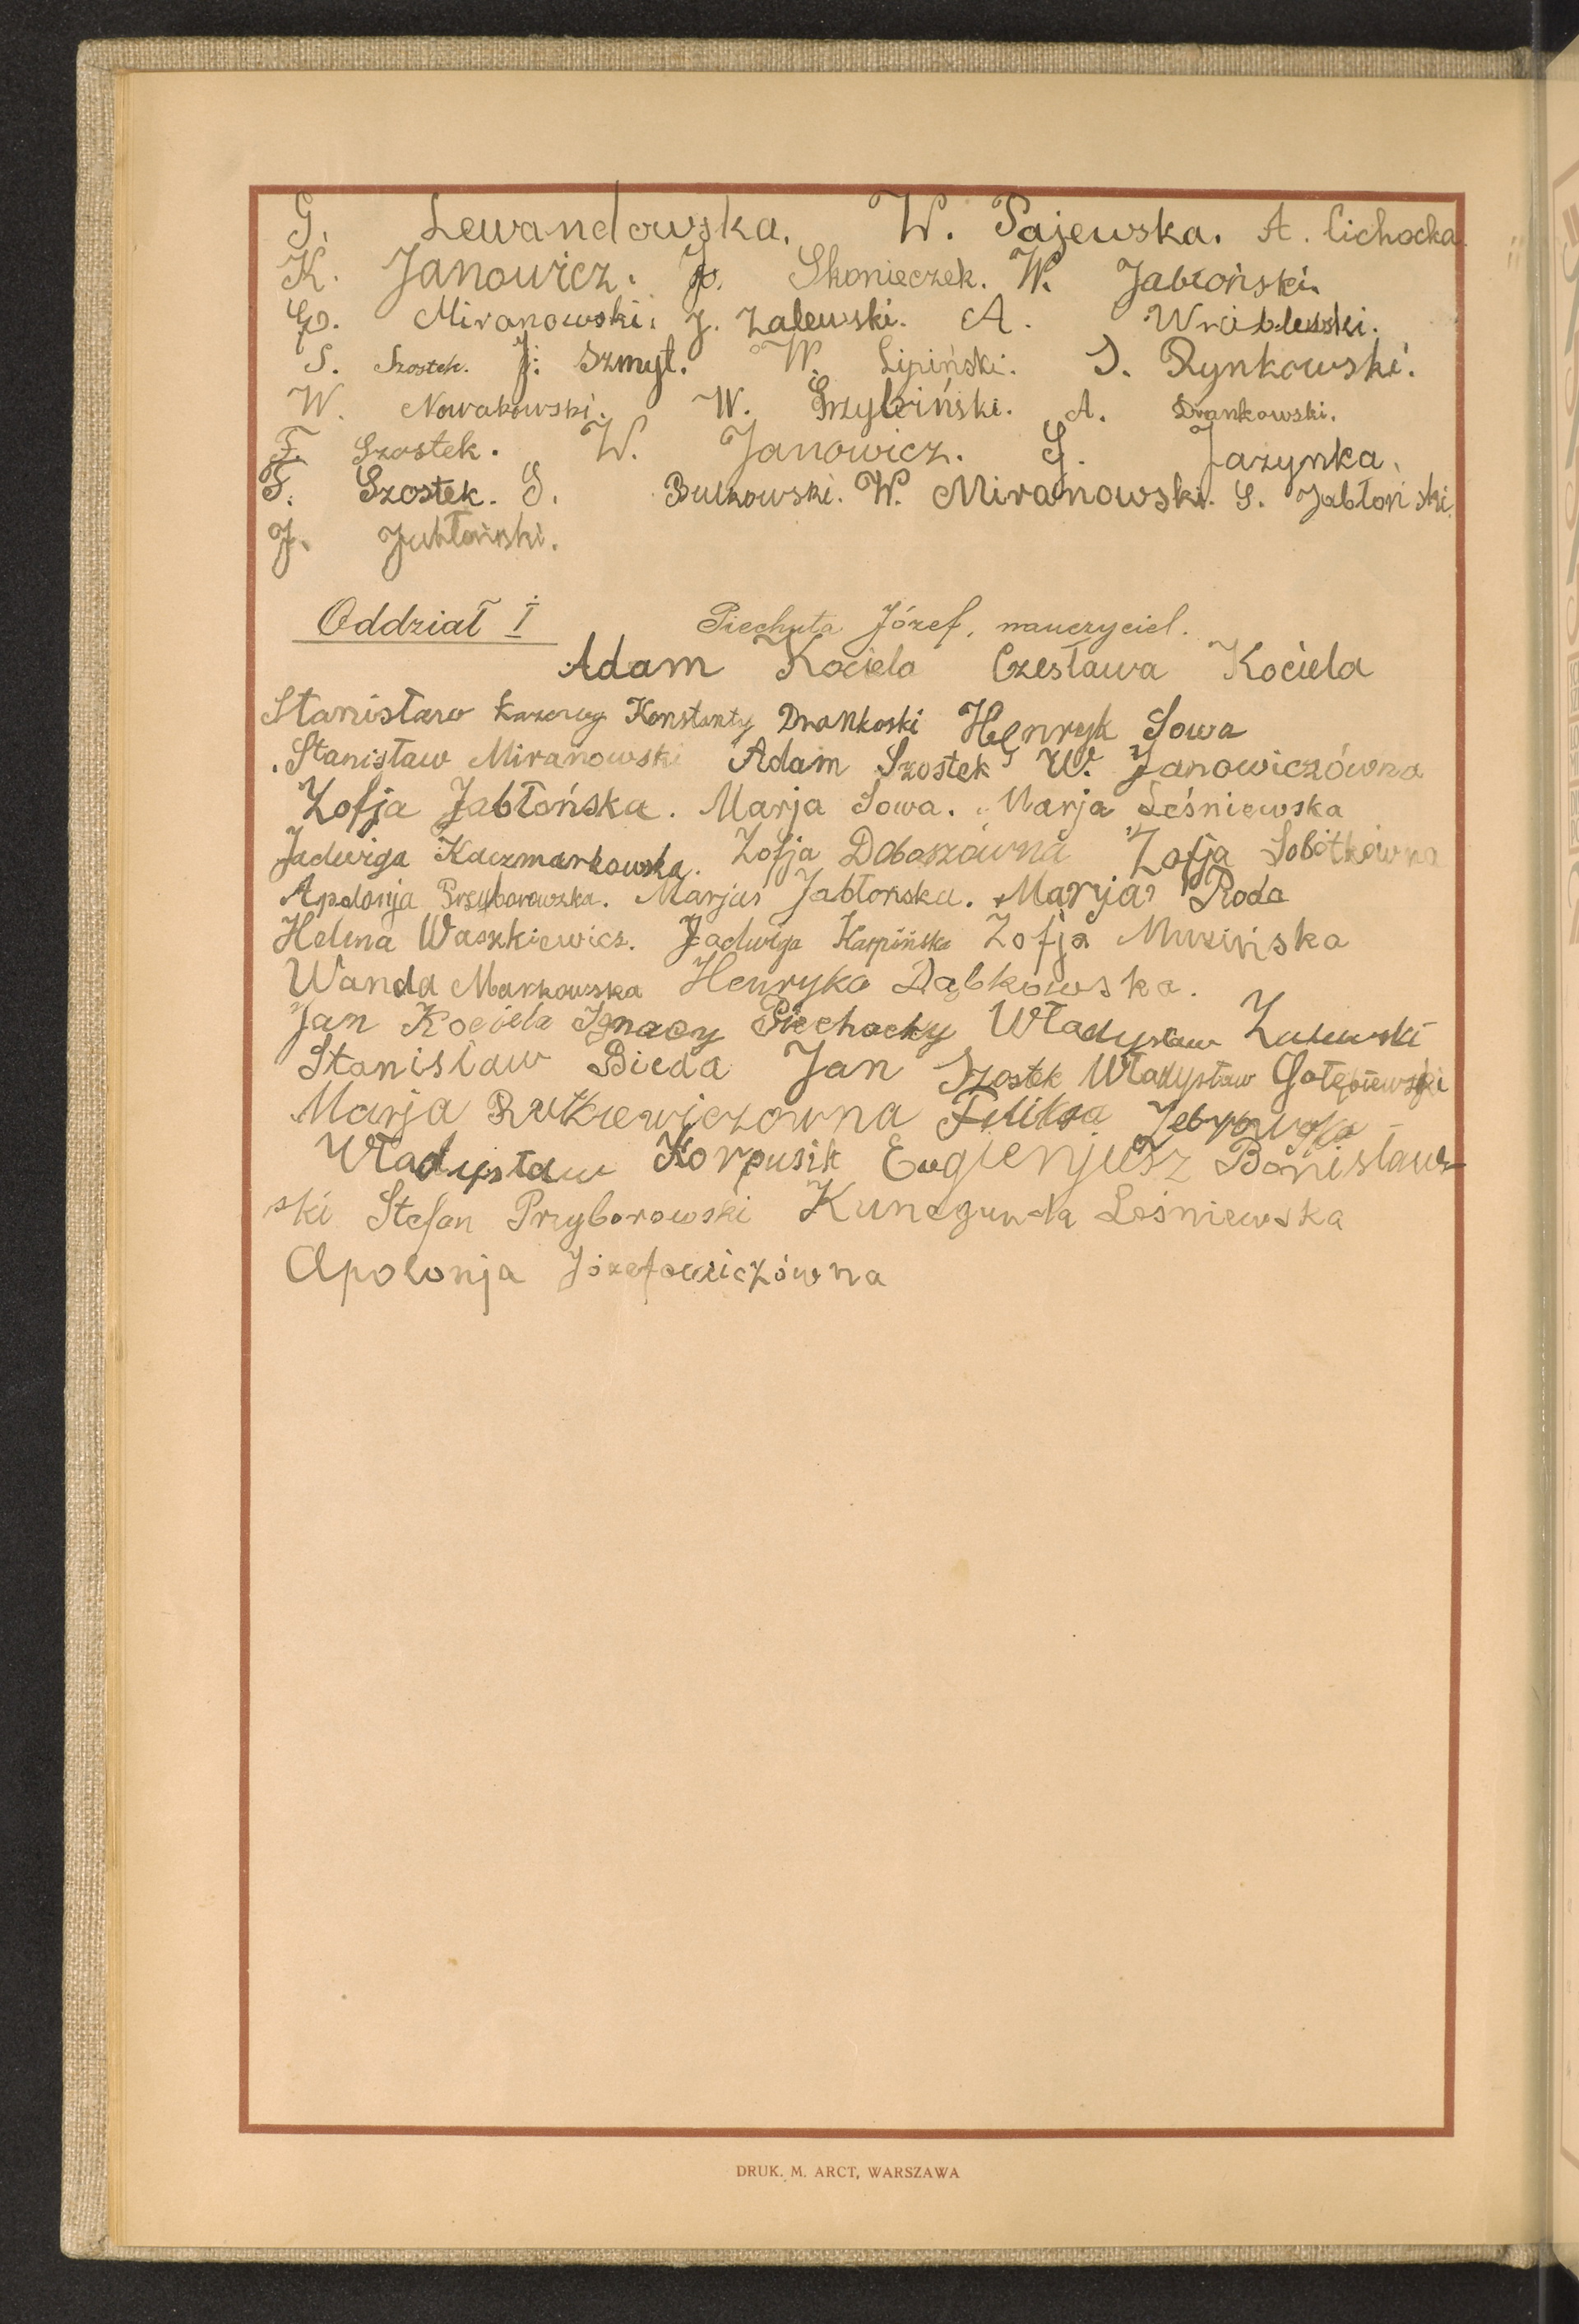 G. Lewandowska. W. Pajewska. A. Cichocka.
K. Janowicz. J. Skonieczek. W. Jabłoński.
G. Miranowski. J. Zalewski. A. Wróblewski.
S. Szostek. J. Szmyt. W. Lipiński. J. Rynkowski.
W. Nowakowski. W. Grzybiński. A. Drankowski.
F. Szostek. W. Janowicz. G. Jazynka.
F. Szostek. S. Bukowski. W. Miranowski. S. Jabłoński.
J. Jabłoński.
Oddział I Piechuta Józef, nauczyciel.
Adam Kociela Czesława Kociela
Stanisław Konstanty Drankoski Henryk Sowa
Stanisław Miranowski Adam Szostek W. Janowiczówna
Zofja Jabłońska. Marja Sowa. Marja Leśniewska
Jadwiga Kaczmarkowska. Zofja Doboszówna Zofja Sobótkówna
Apolonja Przyborowska. Marja Jabłońska. Marja Roda
Helena Waszkiewicz. Jadwiga Karpińska Zofja Muzińska
Wanda Markowska Henryka Dąbkowska.
Jan Kociela Ignacy Piechocky Władysław Zalewski
Stanisław Bieda Jan Szostek Władysław Gołębiewski
Marja Rutkiewiczówna Feliksa
Władysław Korpusik Eugienjusz Bonisław-
ski Stefan Przyborowski Kunegunda Leśniewska
Apolonja Józefowiczówna
DRUK. M. ARCT, WARSZAWA